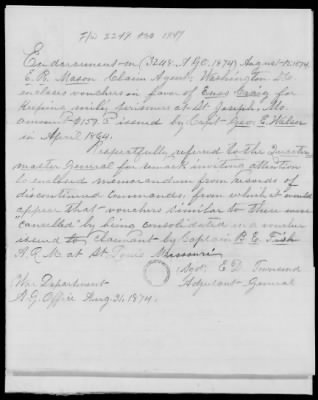 Endorsement on (3248 A.G.O. 1874) August 12 1874
E. R. Mason Claim Agent, Washington D.C.
encloses vouchers in favor of Enos Craig for
keeping mily. prisoners at St. Joseph, Mo.
amount $157.5 issued by Capt. Geo. E.
in April 1864.
respectfully referred to the Quarter
master General for remark inviting attention
to enclosed memorandum from records of
discontinued commands, from which it would
appear that "vouchers similar to these were
cancelled" by being consolidated in a voucher
issued to claimant by Captain B. E. Fisk
A.Q.M. at St. Louis Missouri
Sgd. E. D. Townsend
War Department Adjutant General
A.G. Office Aug. 31, 1874.